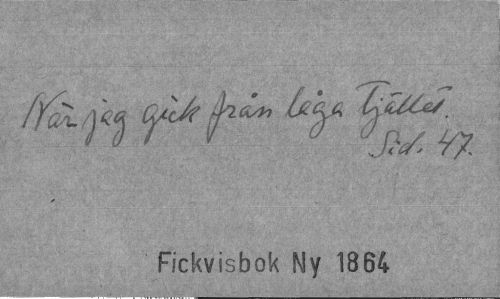 När jag gick från låga tjället.
Sid. 47.
Fickvisbok Ny 1864